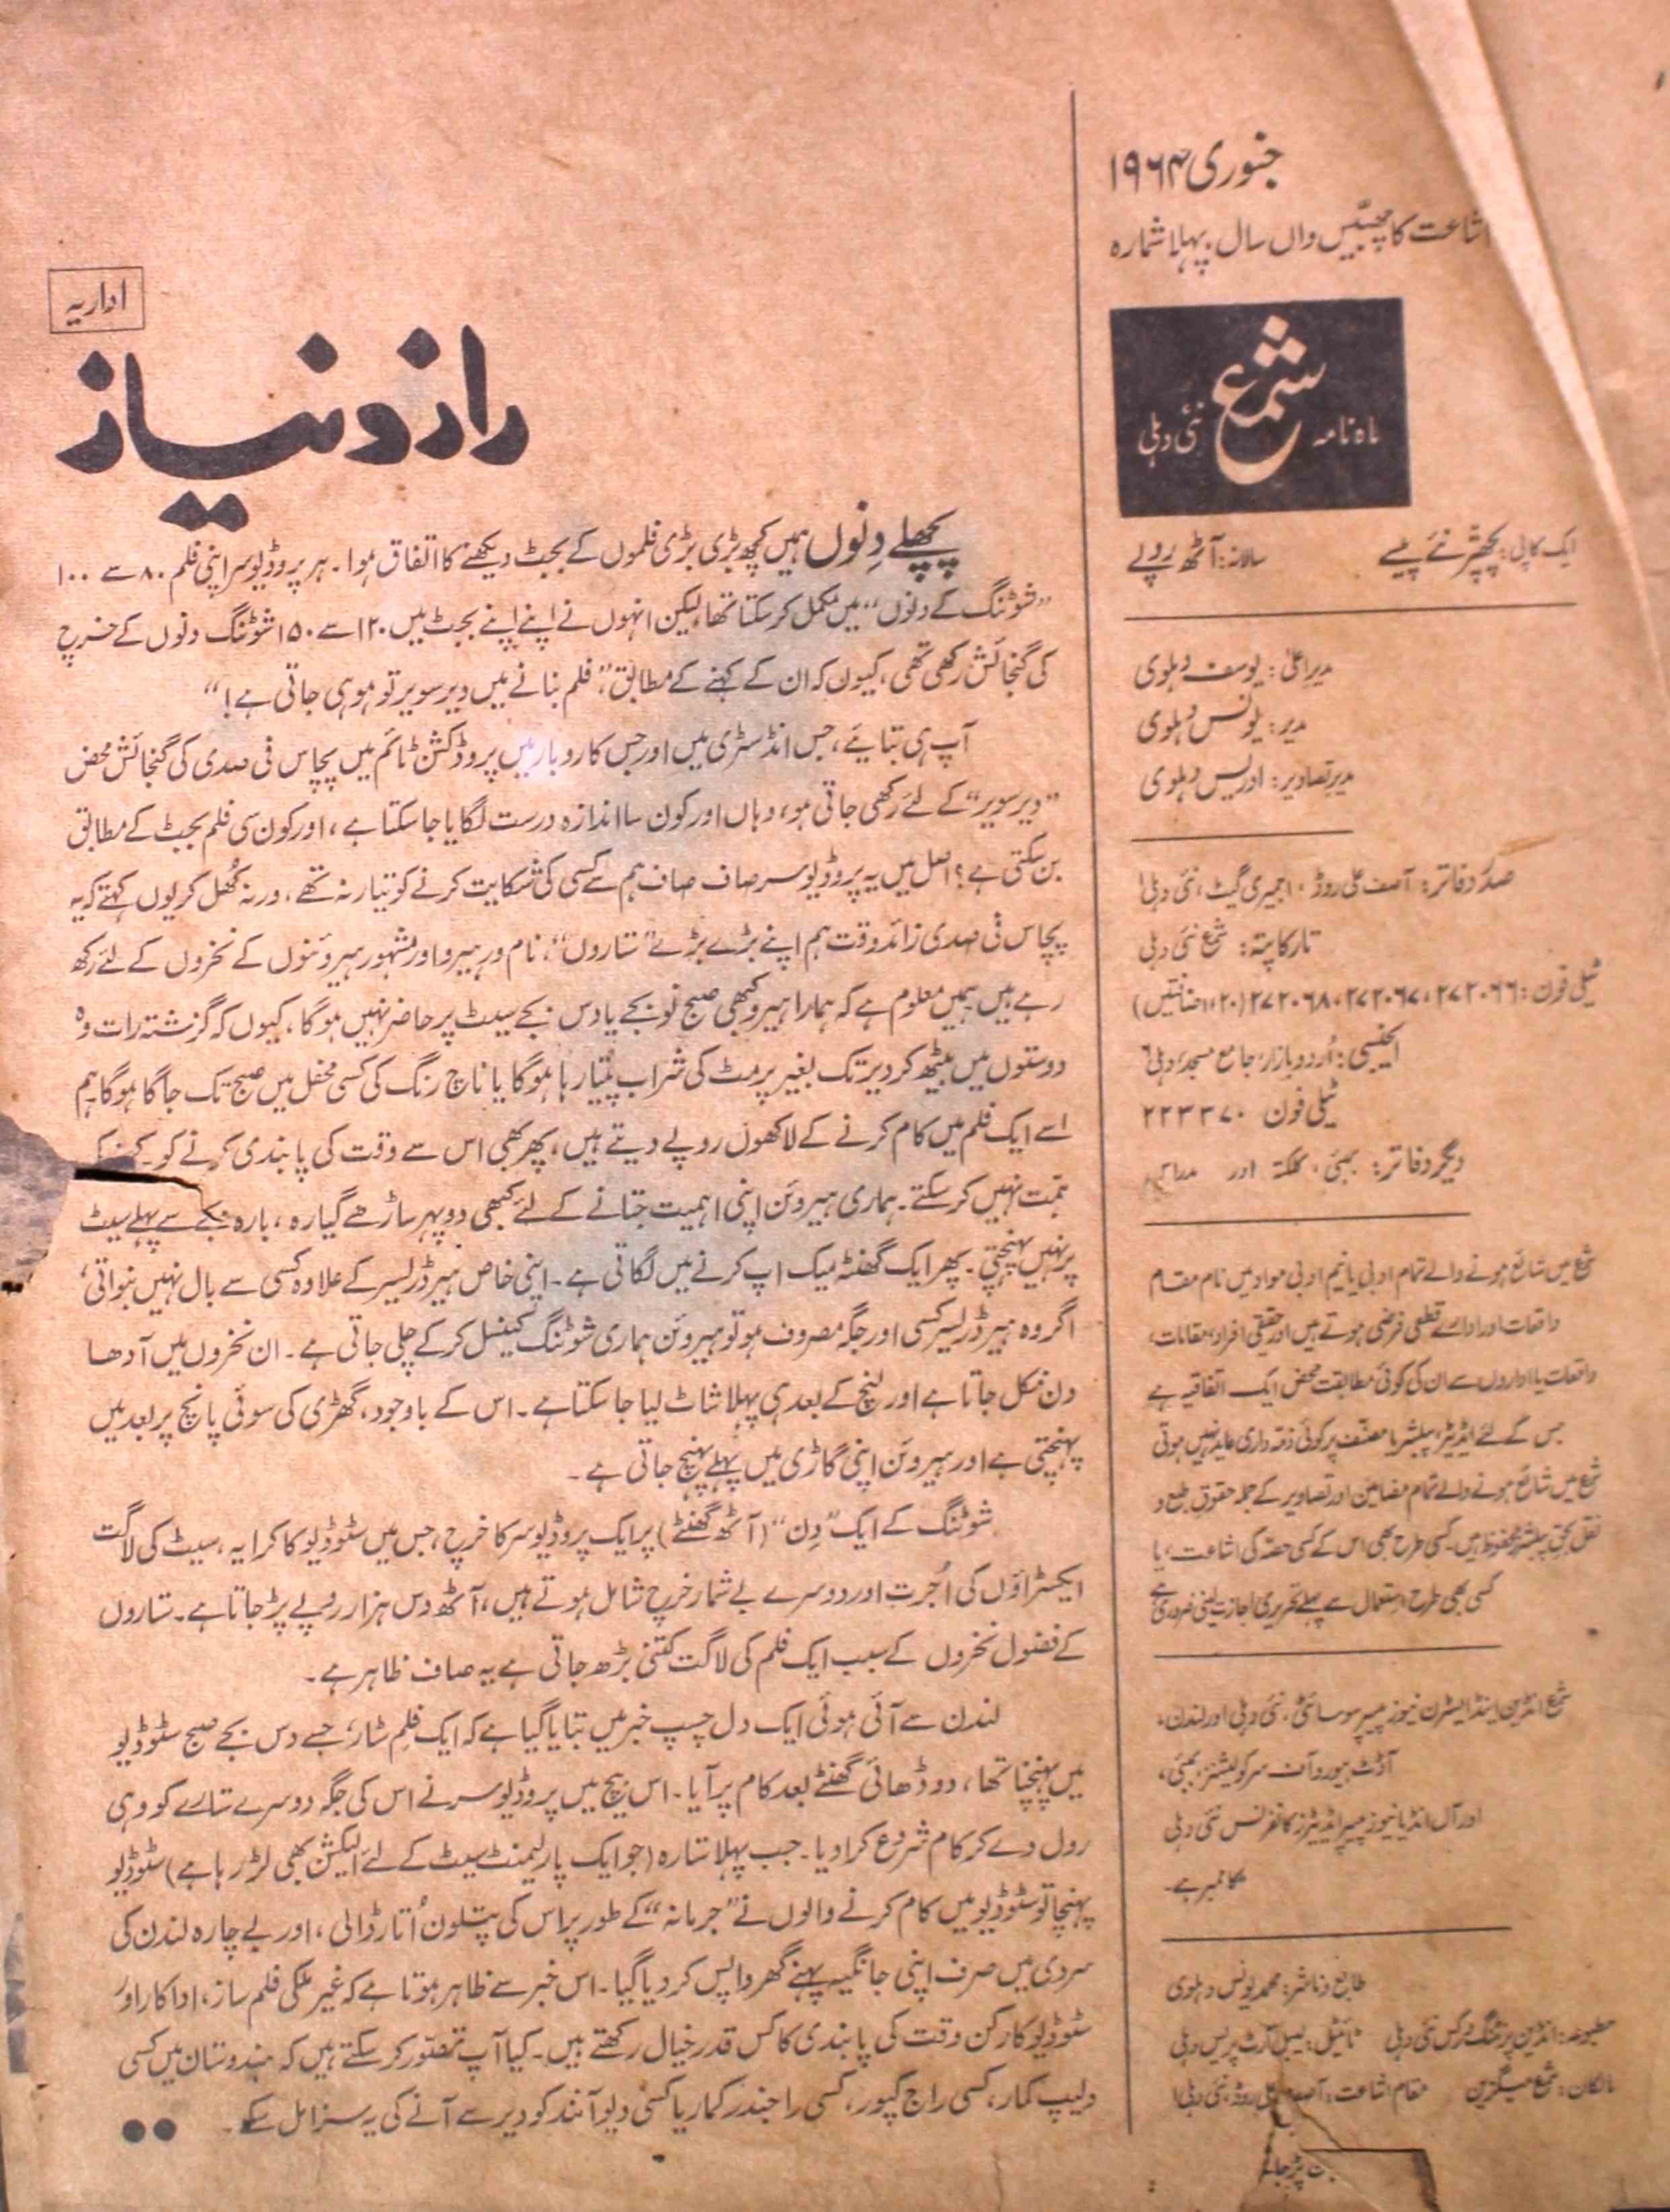 جنوری ۱۹۶۴ء
اشاعت کا چھبیسواں سال، پہلا شمارہ
ماہ نامہ شمع نئی دہلی
ایک کاپی: پچھتر نئے پیسے سالانہ: آٹھ روپے
مدیر اعلیٰ: یوسف دہلوی
مدیر: یونس دہلوی
مدیر تصاویر: ادریس دہلوی
صدر دفاتر: آصف علی روڈ، اجمیری گیٹ، نئی دہلی ۱
تار کا پتہ: شمع نئی دہلی
ٹیلی فون: ۲۷۲۰۶۶، ۲۷۲۰۶۷، ۲۷۲۰۶۸
ایجنسی: اُردو بازار، جامع مسجد، دہلی ۶
ٹیلی فون ۲۲۳۳۷۰
دیگر دفاتر: بمبئی، کلکتہ اور مدراس
شمع میں شائع ہونے والے تمام ادبی یا نیم ادبی مواد میں نام مقام
واقعات اور ادارے قطعی فرضی ہوتے ہیں اور حقیقی افراد، مقامات،
واقعات یا اداروں سے ان کی کوئی مطابقت محض ایک اتفاقیہ ہے
جس کے لئے ایڈیٹر، پبلشر یا مصنف پر کوئی ذمہ داری عاید نہیں ہوتی
شمع میں شائع ہونے والے تمام مضامین اور تصاویر کے جملہ حقوق طبع و
نقل بحق پبلشر محفوظ ہیں۔ کسی طرح بھی اس کے کسی حصہ کی اشاعت، یا
کسی بھی طرح استعمال سے پہلے تحریری اجازت لینی ضروری ہے
شمع انڈین اینڈ ایسٹرن نیوز پیپر سوسائٹی، نئی دہلی اور لندن،
آڈٹ بیورو آف سرکولیشنز، بمبئی،
اور آل انڈیا نیوز پیپر ایڈیٹرز کانفرنس نئی دہلی
کا ممبر ہے۔
طابع و ناشر: محمد یونس دہلوی
مطبوعہ: انڈین پرنٹنگ ورکس نئی دہلی ٹائیٹل: آرٹ پریس دہلی
مالکان: شمع میگزین مقام اشاعت: آصف علی روڈ، نئی دہلی ۱
اداریہ
راز و نیاز
پچھلے دِنوں ہمیں کچھ بڑی بڑی فلموں کے بجٹ دیکھنے کا اتفاق ہوا۔ ہر پروڈیوسر اپنی فلم ۸۰ سے ۱۰۰
”شوٹنگ کے دنوں“ میں مکمل کر سکتا تھا، لیکن انہوں نے اپنے اپنے بجٹ میں ۱۲۰ سے ۱۵۰ شوٹنگ دنوں کے خرچ
کی گنجائش رکھی تھی، کیوں کہ ان کے کہنے کے مطابق، ”فلم بنانے میں دیر سویر تو ہو ہی جاتی ہے!“
آپ ہی بتائیے، جس انڈسٹری میں اور جس کاروبار میں پروڈکشن ٹائم میں پچاس فی صدی کی گنجائش محض
”دیر سویر“ کے لئے رکھی جاتی ہو، وہاں اور کون سا اندازہ درست لگایا جا سکتا ہے، اور کون سی فلم بجٹ کے مطابق
بن سکتی ہے؟ اصل میں یہ پروڈیوسر صاف صاف ہم سے کسی کی شکایت کرنے کو تیار نہ تھے، ورنہ کُھل کر یوں کہتے کہ یہ
پچاس فی صدی زائد وقت ہم اپنے بڑے بڑے ”ستاروں“، نام ور ہیرو اور مشہور ہیروئنوں کے نخروں کے لئے رکھ
رہے ہیں، ہمیں معلوم ہے کہ ہمارا ہیرو کبھی صبح نو بجے یا دس بجے سیٹ پر حاضر نہیں ہو گا، کیوں کہ گزشتہ رات وہ
دوستوں میں بیٹھ کر دیر تک بغیر پرمٹ کی شراب پیتا رہا ہو گا یا ناچ رنگ کی کسی محفل میں صبح تک جاگا ہو گا۔ ہم
اسے ایک فلم میں کام کرنے کے لاکھوں روپے دیتے ہیں، پھر بھی اس سے وقت کی پابندی کرنے کو کہنے کی
ہمت نہیں کر سکتے۔ ہماری ہیروئن اپنی اہمیت جتانے کے لئے کبھی دوپہر ساڑھے گیارہ، بارہ بجے سے پہلے سیٹ
پر نہیں پہنچتی۔ پھر ایک گھنٹہ میک اپ کرنے میں لگاتی ہے۔ اپنی خاص ہیرڈریسر کے علاوہ کسی سے بال نہیں بنواتی،
اگر وہ ہیرڈریسر کسی اور جگہ مصروف ہو تو ہیروئن ہماری شوٹنگ کینسل کر کے چلی جاتی ہے۔ ان نخروں میں آدھا
دن نکل جاتا ہے اور لنچ کے بعد ہی پہلا شاٹ لیا جا سکتا ہے۔ اس کے باوجود، گھڑی کی سوئی پانچ پر بعد میں
پہنچتی ہے اور ہیروئن اپنی گاڑی میں پہلے پہنچ جاتی ہے۔
شوٹنگ کے ایک ”دِن“ (آٹھ گھنٹے) پر ایک پروڈیوسر کا خرچ، جس میں سٹوڈیو کا کرایہ، سیٹ کی لاگت
ایکسٹراؤں کی اُجرت اور دوسرے بے شمار خرچ شامل ہوتے ہیں، آٹھ دس ہزار روپے پڑ جاتا ہے۔ ستاروں
کے فضول نخروں کے سبب ایک فلم کی لاگت کتنی بڑھ جاتی ہے یہ صاف ظاہر ہے۔
لندن سے آئی ہوئی ایک دل چسپ خبر میں بتایا گیا ہے کہ ایک فلم سٹار، جسے دس بجے صبح سٹوڈیو
میں پہنچنا تھا، دو ڈھائی گھنٹے بعد کام پر آیا۔ اس بیچ میں پروڈیوسر نے اس کی جگہ دوسرے ستارے کو وہی
رول دے کر کام شروع کرا دیا۔ جب پہلا ستارہ (جو ایک پارلیمنٹ سیٹ کے لئے الیکشن بھی لڑ رہا ہے) سٹوڈیو
پہنچا تو سٹوڈیو میں کام کرنے والوں نے ”جرمانہ“ کے طور پر اس کی پتلون اُتار ڈالی، اور بے چارہ لندن کی
سردی میں صرف اپنی جانگیہ پہنے گھر واپس کر دیا گیا۔ اس خبر سے ظاہر ہوتا ہے کہ غیر ملکی فلم ساز، اداکار اور
سٹوڈیو کارکن وقت کی پابندی کا کس قدر خیال رکھتے ہیں۔ کیا آپ تصور کر سکتے ہیں کہ ہندوستان میں کسی
دلیپ کمار، کسی راج کپور، کسی راجندر کمار یا کسی دیو آنند کو دیر سے آنے کی یہ سزا مل سکے۔